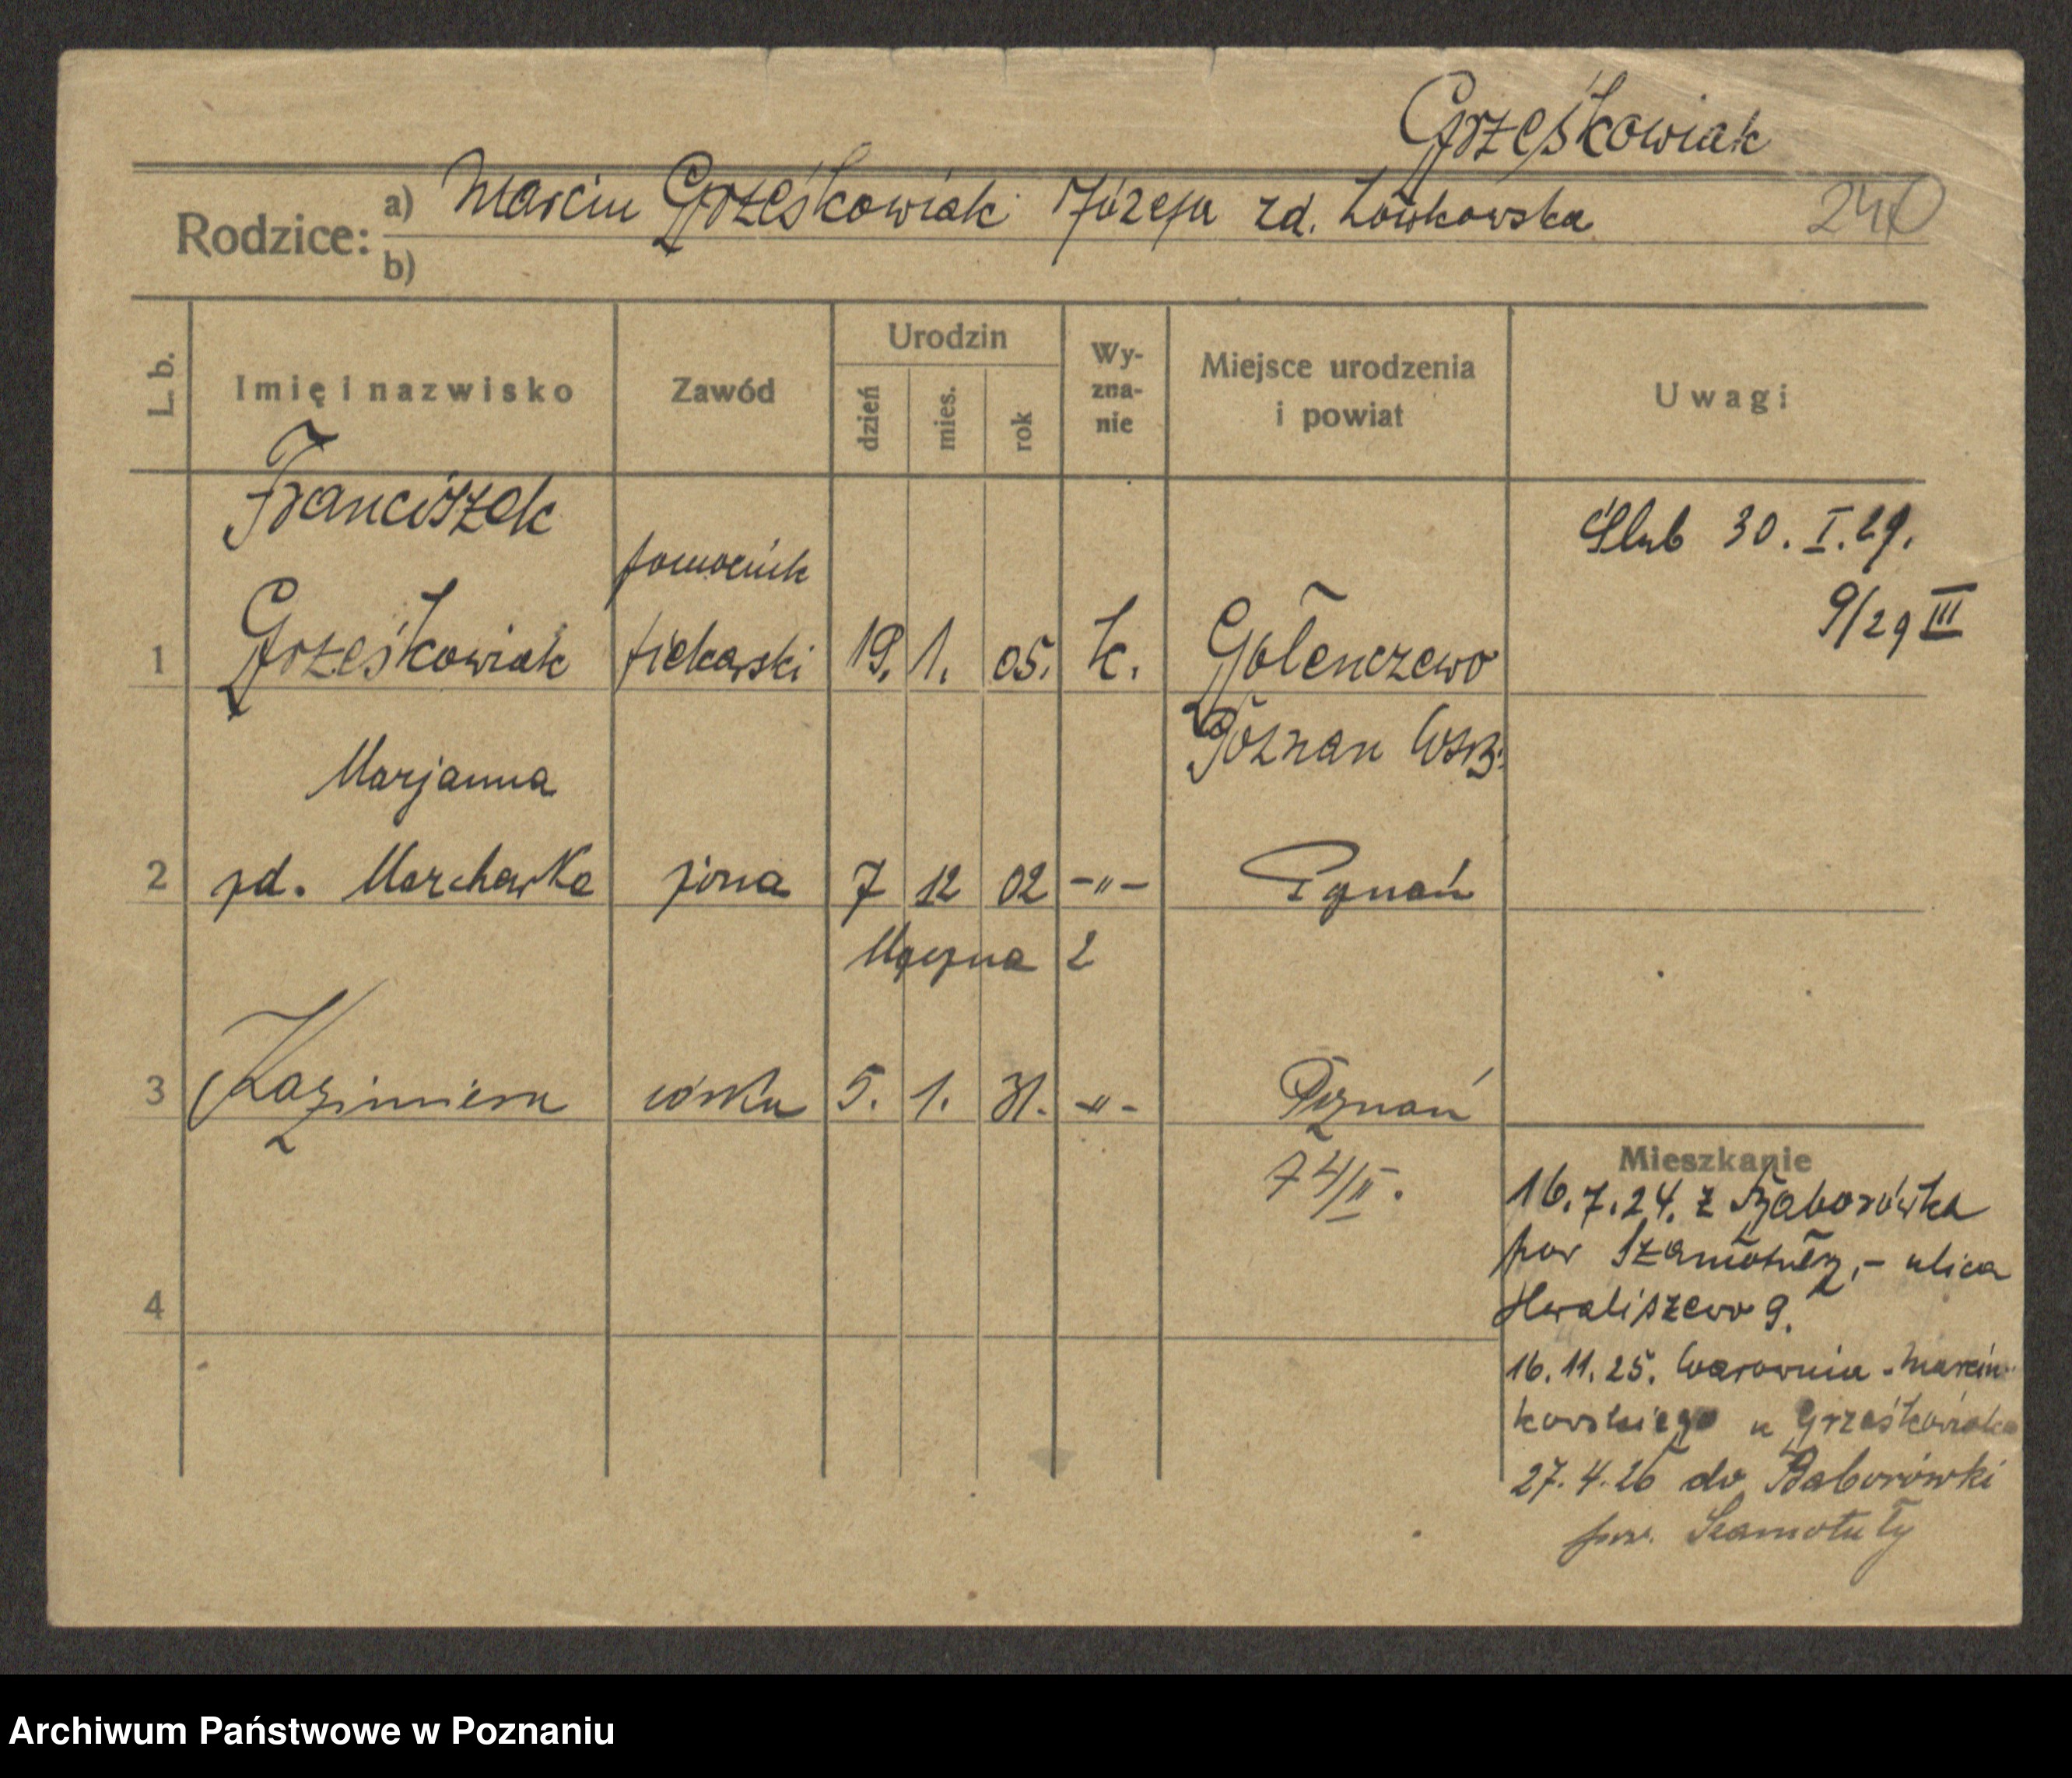 Grześkowiak
Rodzice: a) Marcin Grześkowiak Józefa zd. Lówkowska 240
b)
L. b. Imię i nazwisko Zawód Urodzin dzień mies. rok Wyznanie Miejsce urodzenia i powiat Uwagi
Franciszek
Ślub 30. I. 29.
pomocnik
9/29 III
1 Grześkowiak piekarski 19. 1. 05. k. Golenczewo
Poznań Wsch.
Marjanna
2 zd. Marchewka żona 7 12 02 -"- Poznań
2
3 Kazimiera córka 5. 1. 31. -"- Poznań
74/II.
Mieszkanie
16.7.24. z Baborówka
pow Szamotuły, - ulica
4
Hwaliszewo 9.
16.11.25. Warownia - Marcin-
kowskiego u Grześkowiaka
27.4.26 do Baborówki
pow. Szamotuły
Archiwum Państwowe w Poznaniu